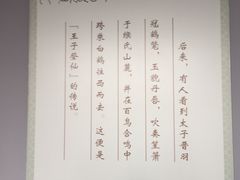 后来，有人看到太子晋羽
冠鹤氅，玉貌丹唇，吹奏笙箫
于缑氏山麓，并在百鸟合鸣中
跨乘白鹤往西而去。这便是
“王子登仙”的传说。